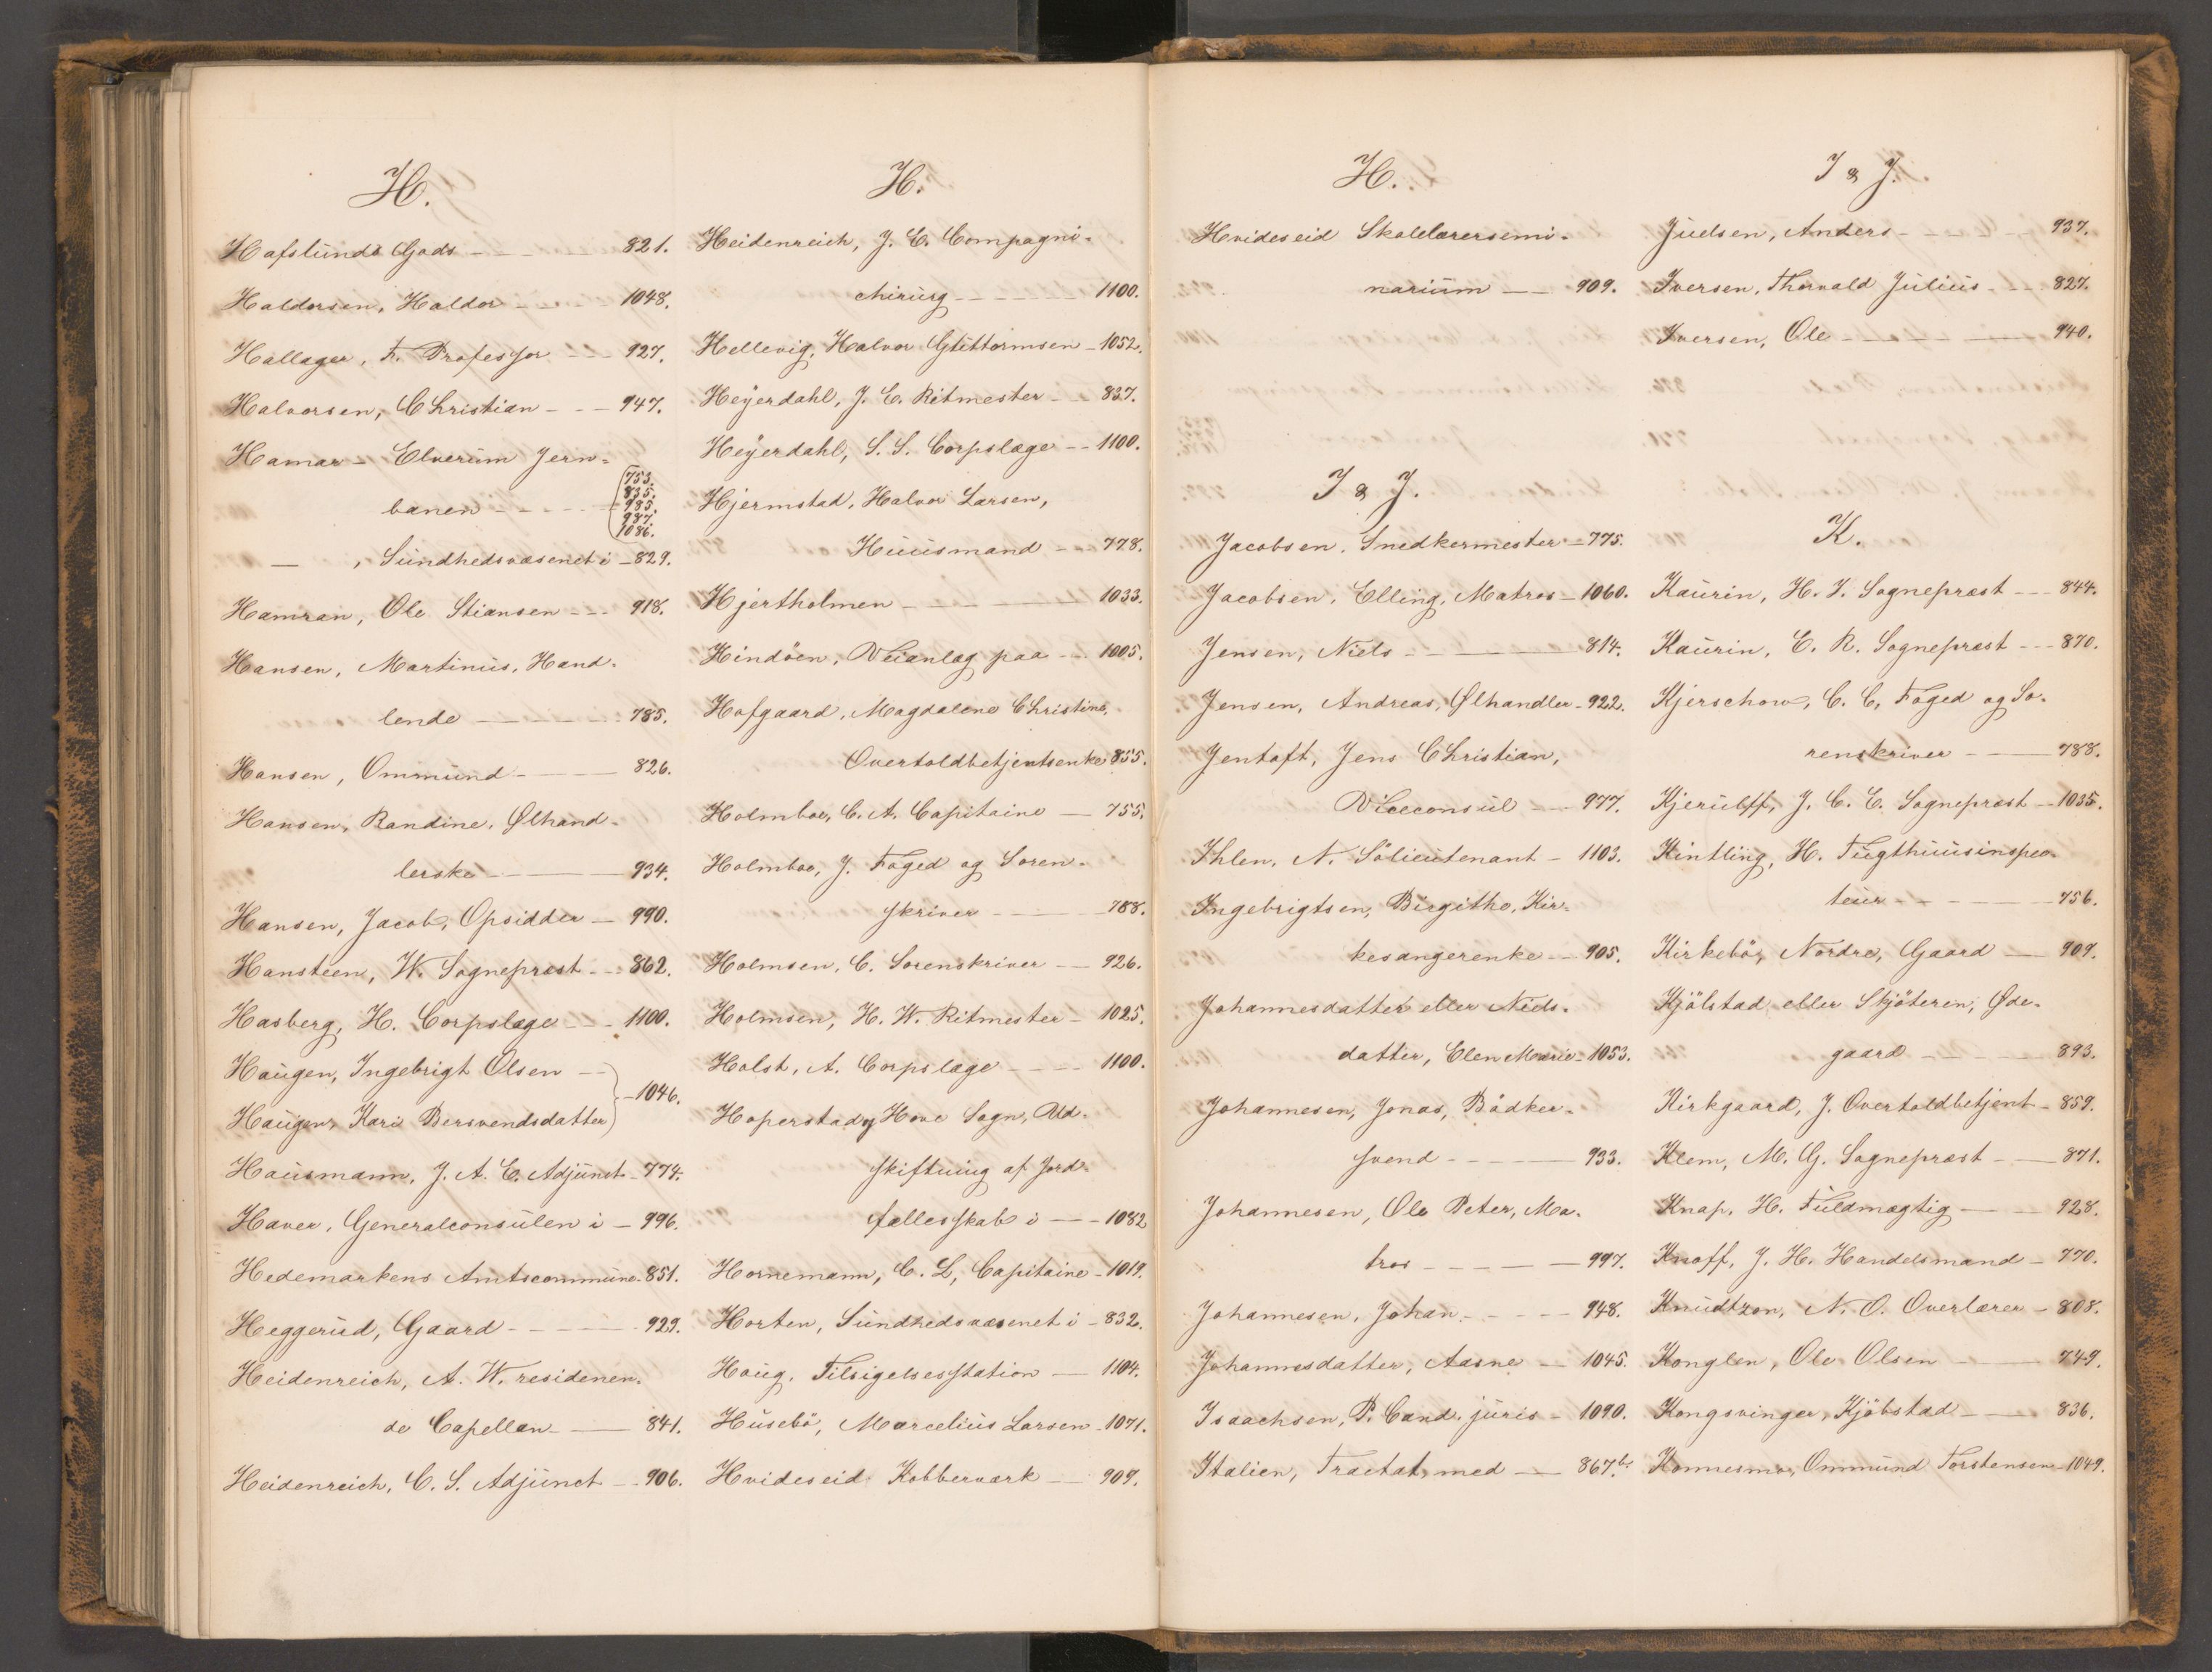 H.
Hafslunds Gods 821.
Haldorsen, Haldor 1048.
Hallager, F. Professor 927.
Halvorsen, Christian 947.
Hamar-Elverum Jern-
753.
835.
banen 985.
987.
1086.
— , Sundhedsvæsenet i 829.
Hamran, Ole Stiansen 918.
Hansen, Martinus, Hand-
lende 785.
Hansen, Ommund 826.
Hansen, Randine, Ølhand-
lerske 934.
Hansen, Jacob, Opsidder 990.
Hansteen, W. Sognepræst 862.
Hasberg, H. Corpslæge 1100.
Haugen, Ingebrigt Olsen
1046.
Haugen, Kari Bersvendsdatter
Hausmann, J. A. C. Adjunct 774.
Havre, Generalconsulen i 996.
Hedemarkens Amtscommune 851.
Heggerud, Gaard 929.
Heidenreich, A. W. residenen-
de Capellan 841.
Heidenreich, C. S. Adjunct 906.
H.
Heidenreich, J. E. Compagni-
chirurg 1100.
Hellevig, Halvor Gluttormsen 1052.
Heÿerdahl, J. E. Ritmester 837.
Heÿerdahl, S. S. Corpslæge 1100.
Hjermstad, Halvor Larsen,
Huusmand 778.
Hjertholmen 1033.
Hindöen, Veianlæg paa 1005.
Hofgaard, Magdalene Christine,
Overtoldbetjentsenke 855.
Holmboe, C. A. Capitaine 755.
Holmboe, J. Foged og Soren-
skriver 788.
Holmsen, C. Sorenskriver 926.
Holmsen, H. W. Ritmester 1025.
Holst, A. Corpslæge 1100.
Hoperstad og Hove Sogn, Ud-
skiftning af Jord-
fællesskab i 1082
Hornemann, C. L, Capitaine 1019.
Horten, Sundhedsvæsenet i 832.
Houg, Tilsigelsesstation 1104.
Husebö, Marcelius Larsen 1071.
Hvideseid Kobberværk 909.
H.
Hvideseid Skolelærersemi-
narium 909.
I & J.
Jacobsen, Snedkermester 775.
Jacobsen, Elling, Matros 1060.
Jensen, Niels 814.
Jensen, Andreas, Ølhandler 922.
Jentoft, Jens Christian,
Viceconsul 977.
Ihlen, N. Sölieutenant 1103.
Ingebrigtsen, Birgithe, Kir-
kesangerenke 905.
Johannesdatter eller Niels-
datter, Elen Marie 1053.
Johannesen, Jonas, Bödker-
svend 933.
Johannesen, Ole Peter, Ma-
tros 997.
Johannesen, Johan 948.
Johannesdatter, Aasne 1045.
Isaachsen, P. Cand. juris 1090.
Italien, Tractat med 867.b.
I & J.
Juelsen, Anders 937.
Iversen, Thorvald Julius 827.
Iversen, Ole 940.
K.
Kaurin, H. J. Sognepræst 844.
Kaurin, E. R. Sognepræst 870.
Kjerschow, C. C, Foged og So-
renskriver 788.
Kjerulff, J. C. E. Sognepræst 1035.
Kintling, H. Tugthuusinspec-
teur 756.
Kirkebö, Nordre, Gaard 909.
Kjölstad eller Skjöteren, Øde-
gaard 893.
Kirkgaard, J. Overtoldbetjent 859.
Klem, M. G. Sognepræst 871.
Knap, H. Fuldmægtig 928.
Knoff, J. H. Handelsmand 770.
Knudtzon, N. O. Overlærer 808.
Konglen, Ole Olsen 749.
Kongsvinger, Kjöbstad 836.
Konnesmo, Ommund Torstensen 1049.